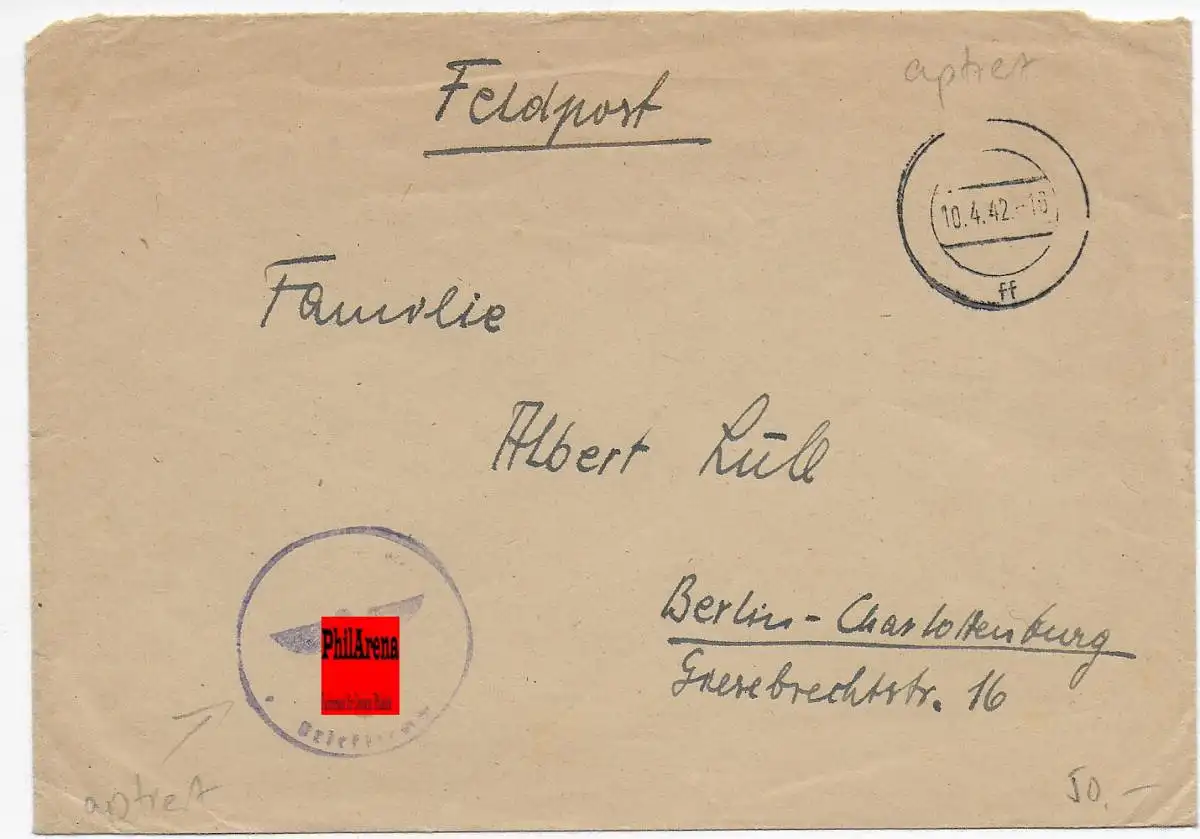 Feldpost
aptret
10.4.42.-18
ff
Familie
Albert Lüll
Berlin-Charlottenburg
Giesebrechtstr. 16
PhilArena
aptret
50.-